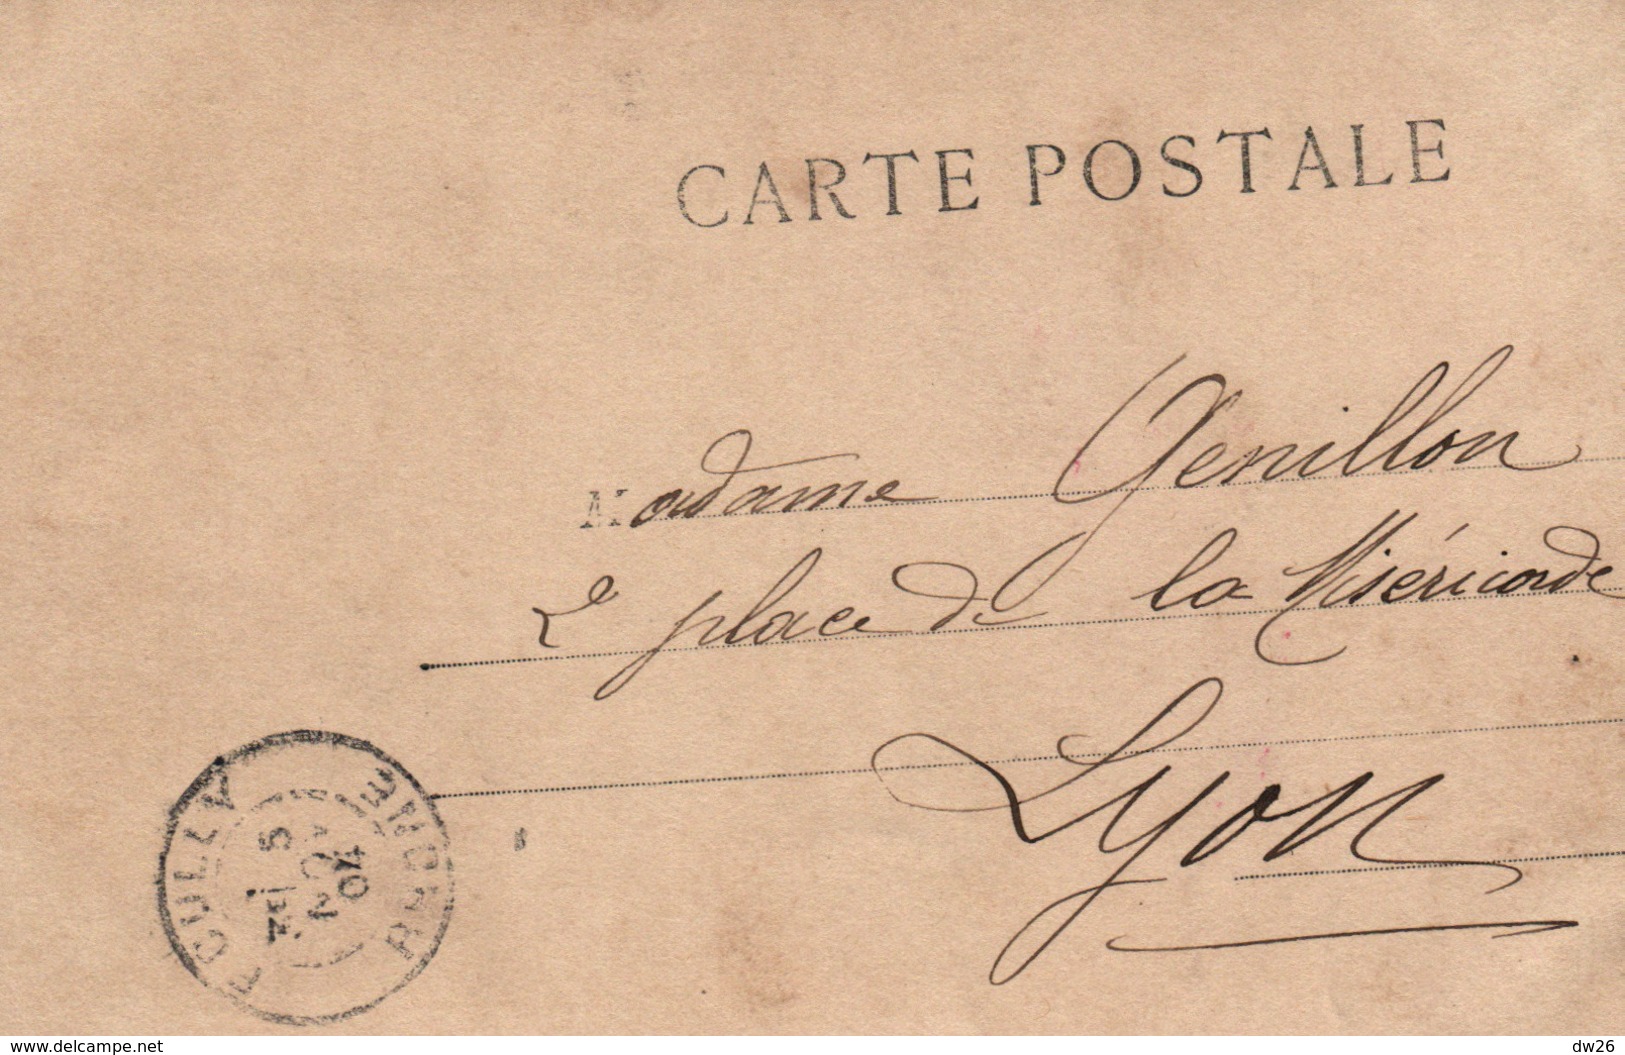 CARTE POSTALE
Madame Genillon
2 place de la Miséricorde
Lyon
ECULLY
RHONE
5
NOV
04
www.delcampe.net
dw26